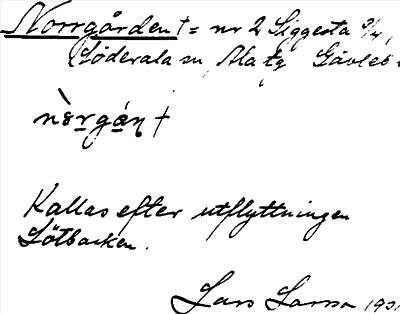 Norrgården † = nr 2 Siggesta 3/4,
Söderala sn, Ala tg Gävleb.
nòrgán †
Kallas efter utflyttningen
Lötbacken.
Lars Larsson